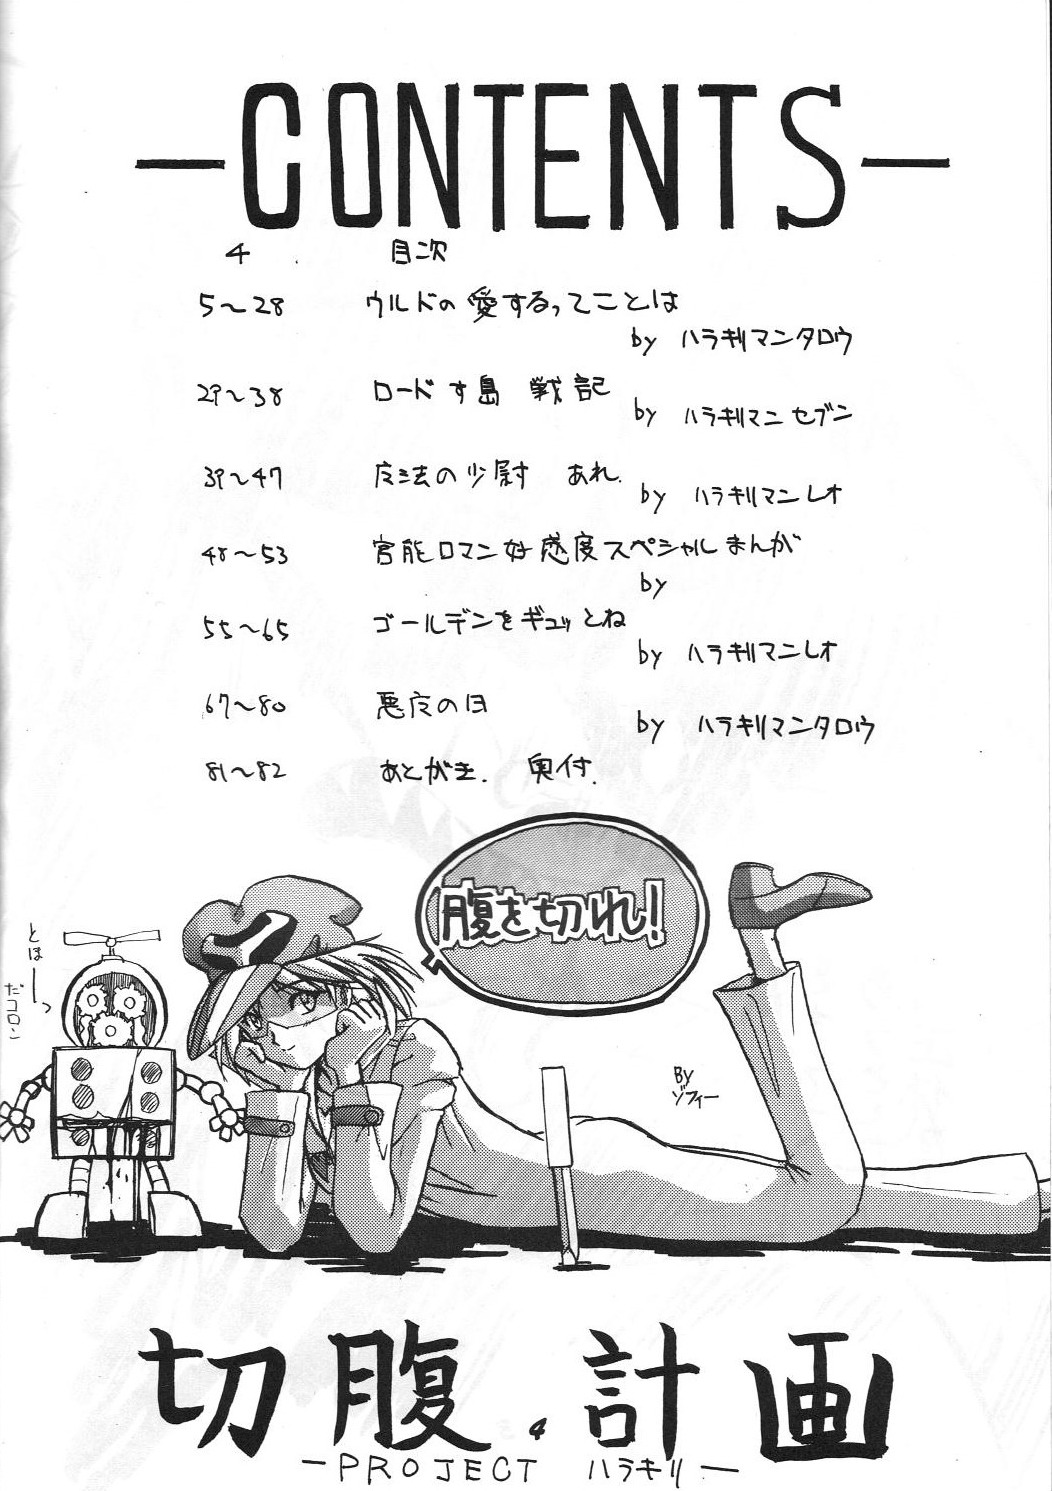 —CONTENTS—
4 目次
5〜28 ウルドの愛するってことは
by ハラキリマンタロウ
29〜38 ロードす島 戦記
by ハラキリマンセブン
39〜47 广法の少尉 あれ.
by ハラキリマンレオ
48〜53 官能ロマン好感度スペシャルまんが
by
55〜65 ゴールデンをギュッとね
by ハラキリマンレオ
67〜80 悪广の日
by ハラキリマンタロウ
81〜82 あとがき. 奥付.
腹を切れ!
とほーっ
だコロン
By
ゾフィー
切腹計画
4
—PROJECT ハラキリ—